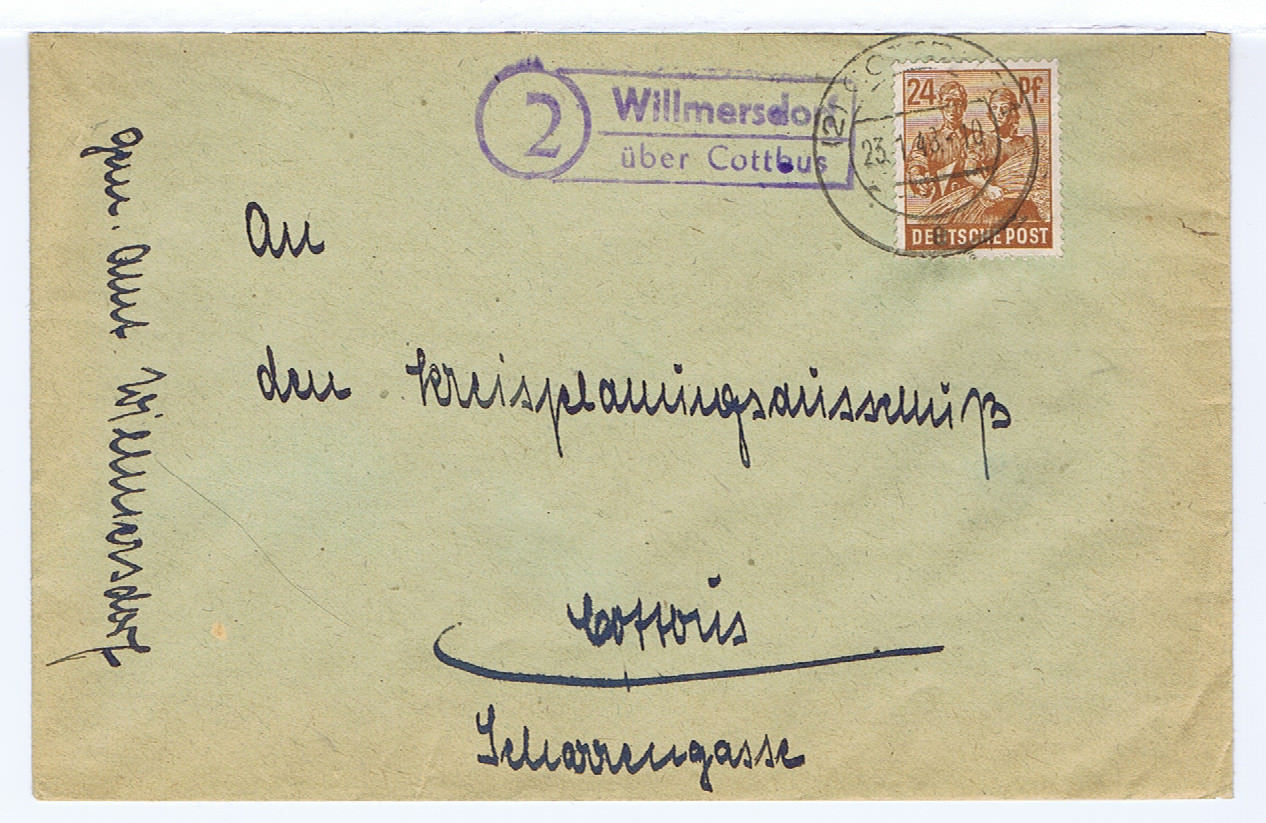 2
Willmersdorf
über Cottbus
(2) COTTBUS
23.1.48.-10
24 Pf.
DEUTSCHE POST
An
den Kreisplanungsausschuß
Cottbus
Scharrengasse
Gem. Amt Willmersdorf